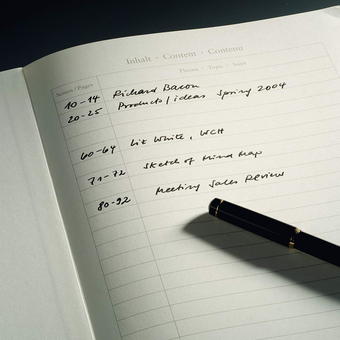 Inhalt · Content · Contenu
Seiten / Pages
Thema · Topic · Sujet
10-14 Richard Bacon
20-25 Products/ideas Spring 2004
60-64 Liz White, WCH
71-72 Sketch of Mind Map
80-92 Meeting Sales Review